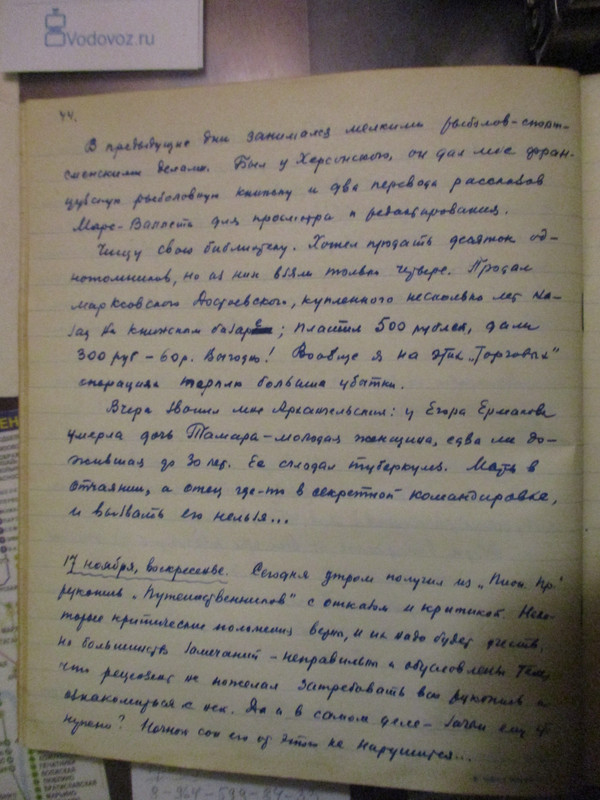 Vodovoz.ru
44.
В предыдущие дни занимался мелкими рыболов-спорт-
сменскими делами. Был у Херсонского, он дал мне фран-
цузскую рыболовную книжку и два перевода рассказов
Марс-Валлетта для просмотра и редактирования.
Чищу свою библиотеку. Хотел продать десяток од-
нотомников, но из них взяли только четыре. Продал
марксовского Достоевского, купленного несколько лет на-
зад на книжном базаре; платил 500 рублей, дали
300 руб – 60 р. Выгодно! Вообще я на этих „торговых"
операциях терплю большие убытки.
Вчера звонил мне Архангельский: у Егора Ермакова
умерла дочь Тамара – молодая женщина, едва ли до-
жившая до 30 лет. Ее сглодал туберкулез. Мать в
отчаянии, а отец где-то в секретной командировке,
и вызвать его нельзя...
17 ноября, воскресенье. Сегодня утром получил из „Пион. Пр."
рукопись „Путешественников" с отказом и критикой. Неко-
торые критические положения верны, и их надо будет учесть,
но большинство замечаний – неправильны и обусловлены тем,
что рецензент не пожелал затребовать всю рукопись и
ознакомиться с ней. Да и в самом деле – зачем ему
нужно? Ночной сон его от этого не нарушится...
ПЕЧАТНИКИ
ВОЛЖСКАЯ
ЛЮБЛИНО
БРАТИСЛАВСКАЯ
МАРЬИНО